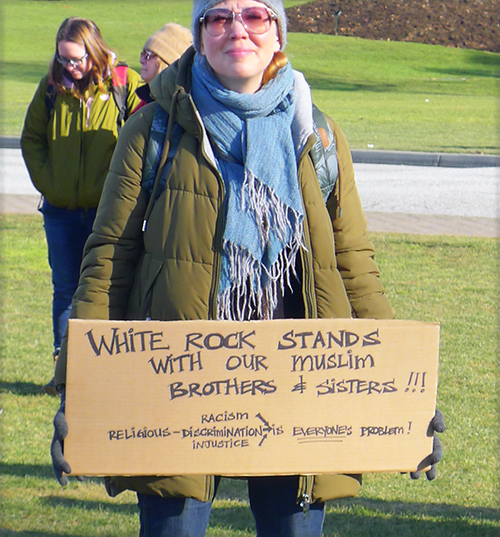 WHITE ROCK STANDS
WITH OUR MUSLIM
BROTHERS & SISTERS !!!
RACISM
RELIGIOUS-DISCRIMINATION IS EVERYONE'S PROBLEM!
INJUSTICE